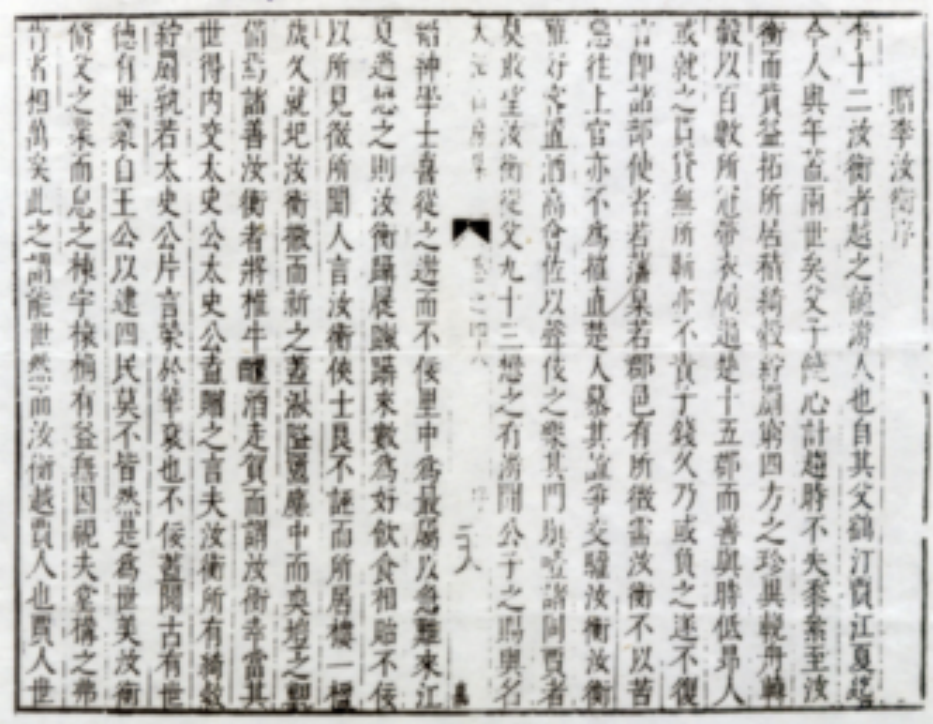 贈李汝衡序
李十二汝衡者越之龍游人也自其父鶴汀賈江夏迄
今人與年蓋兩世矣父子心計趨時不失黍絫至汝
衡而資益拓所居積綺縠紵罽窮四方之珍異輓舟轉
轂以百數所冠帶衣履遍楚十五郡而善與時低昂人
或就之貣貸無所靳亦不責子錢久乃或負之遂不復
言即諸部使者若藩臬若郡邑有所徵需汝衡不以苦
惡往上官亦不為摧直楚人慕其誼爭交驩汝衡汝衡
雅好客置酒高會佐以聲伎之樂其門填噎諸同賈者
莫敢望汝衡從父九十三戀之有游閒公子之賜與名
大泌山房集 卷之四十八 序 二八
縉紳學士喜從之遊而不佞里中為最屬以急難來江
夏過之則汝衡躡屣蹻來數為好飲食相貽不佞
以所見徵所聞人言汝衡俠士良不誣而所居樓一楹
歲久就圯汝衡徹而新之蓋湫隘囂塵中而爽塏之觀
備焉諸善汝衡者將椎牛醵酒走賀而謂汝衡幸當其
世得內交太史公太史公直贈之言夫汝衡所有綺縠
紵罽孰若太史公片言榮於華袞也不佞蓋聞古有世
德有世業自王公以逮四民莫不皆然是為世美汝衡
脩父之業而息之棟宇榱桷有益無因視夫堂構之弗
肯者相萬矣此之謂能世然而汝衡越賈人也賈人世